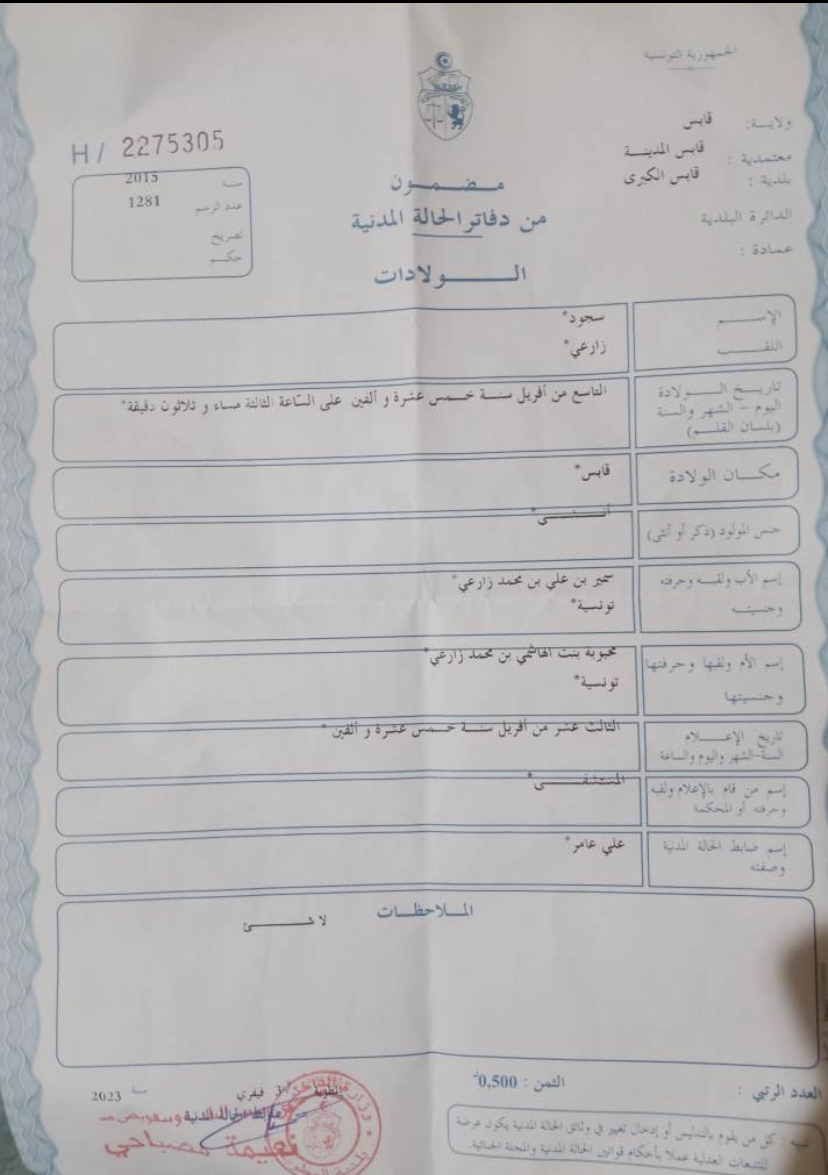 الجمهورية التونسية
ولايــة: قابس
معتمدية : قابس المدينـــة
بلدية : قابس الكبرى
الدائرة البلدية
عمادة :
H / 2275305
سنة 2015
عدد الرسم 1281
تصريح
حكــم
مـضـمـــون
من دفاتر الحالة المدنية
الـــــولادات
الإســـــم سجود*
اللقـــب زارعي*
تاريــخ الـــــولادة
اليوم – الشهر والسنة
(بلسان القلــم)
التاسع من أفريل سنــة خــمـس عشرة و ألفين على السّاعة الثالثة مساء و ثلاثون دقيقة*
مكـــان الولادة قابس*
جنس المولود (ذكر أو أنثى) أنـــثـــى*
إسم الأب ولقبــه وحرفته سمير بن علي بن محمد زارعي*
وجنسيتــه تونسية*
إسم الأم ولقبها وحرفتها محبوبة بنت الهاشمي بن محمد زارعي*
وجنسيتها تونسية*
تاريخ الإعـــــلام
السنة-الشهر واليوم والساعة
الثالث عشر من أفريل سنــة خــمـس عشرة و ألفين *
إسم من قام بالإعلام ولقبه
وحرفته أو المحكمة
المستشفـــــى*
إسم ضابط الحالة المدنية علي عامر*
وصفته
المــلاحظـــات
لا شـــــــئ
العدد الرتبي :
الثمن : 0.500د
فيفري سنة 2023
ضابط الحالة المدنية
نعيمة مصباحي
تنبيه : كل من يقوم بالتدليس أو إدخال تغيير في وثائق الحالة المدنية يكون عرضة
للتتبعات العدلية عملا بأحكام قوانين الحالة المدنية والمجلة الجنائية.